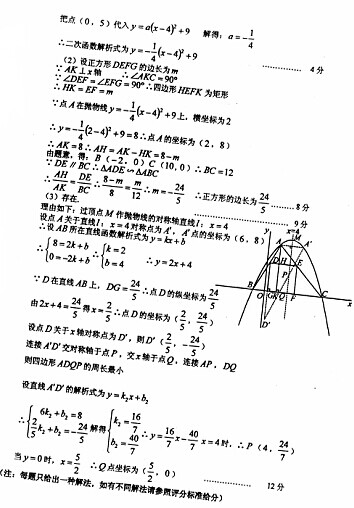 把点（0，5）代入 y=a(x-4)²+9　解得：a=-1/4
∴二次函数解析式为 y=-1/4(x-4)²+9 ………… 4分
（2）设正方形DEFG的边长为m
∵AK⊥x轴　∴∠AKC=90°
∵∠DEF=∠EFG=90°∴四边形HEFK为矩形
∴HK=EF=m
∵点A在抛物线y=-1/4(x-4)²+9上，横坐标为2
∴y=-1/4(2-4)²+9=8∴点A的坐标为（2，8）
∴AK=8∴AH=AK-HK=8-m
由题意，得：B（-2，0）C（10,0）∴BC=12
∵DE∥BC∴△ADE∽△ABC
∴AH/AK=DE/BC∴(8-m)/8=m/12∴m=24/5　∴正方形的边长为24/5 ……… 8分
（3）存在. ………… 9分
理由如下：过顶点M作抛物线的对称轴直线l：x=4
设点A关于直线l：x=4对称点为A′，A′点的坐标为（6，8）
∴设AB所在直线解析式为y=kx+b
∴{8=2k+b　0=-2k+b　∴{k=2　b=4　∴y=2x+4
∵D在直线AB上，DG=24/5∴点D的纵坐标为24/5
由2x+4=24/5得x=2/5∴点D的坐标为（2/5，24/5）
设点D关于x轴对称点为D′，则D′（2/5，-24/5）
连接A′D′交对称轴于点P，交x轴于点Q，连接AP，DQ
则四边形ADQP的周长最小
设直线A′D′的解析式为y=k₂x+b₂
∴{6k₂+b₂=8　2/5k₂+b₂=-24/5　解得{k₂=16/7　b₂=40/7　∴y=16/7x-40/7　x=4时，∴P（4，24/7）
当y=0时，x=5/2　∴Q点坐标为（5/2，0） ………… 12分
（注：每题只给出一种解法，如有不同解法请参照评分标准给分）
y
x=4
M
A
A′
D
H
E
P
B
O
G
K
Q
F
C
x
D′